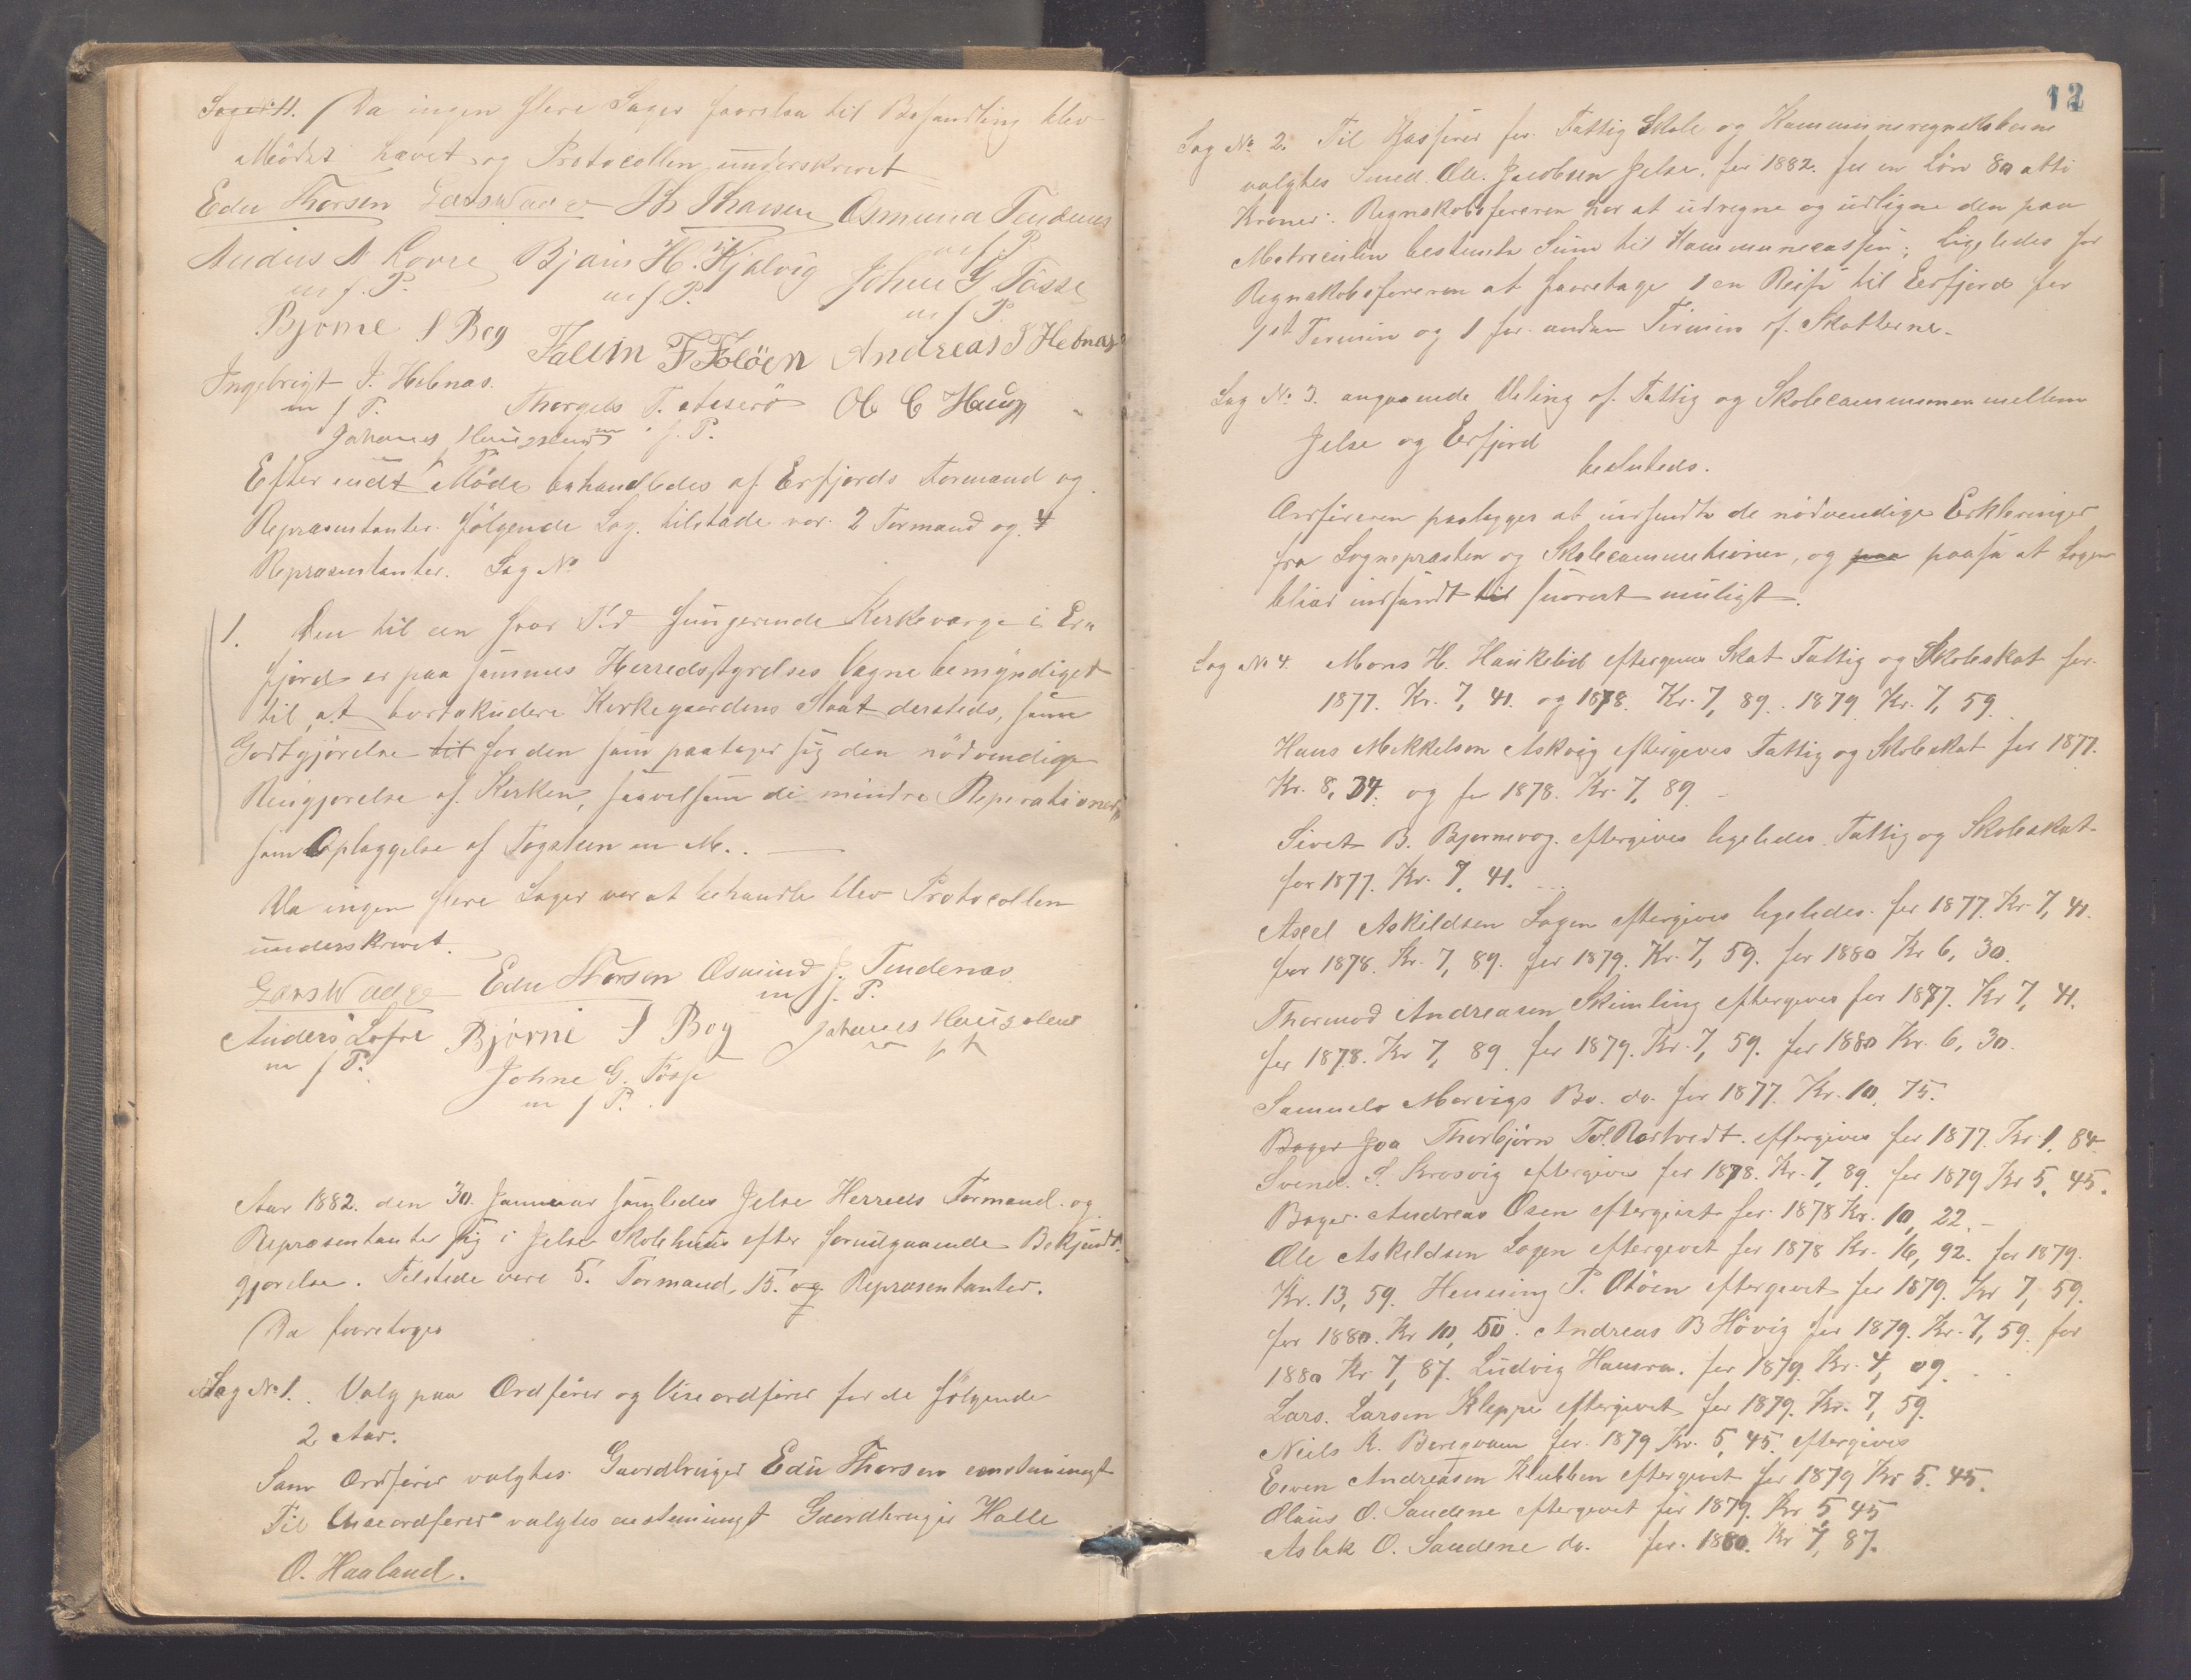 Da ingen flere Sager foorelaa til Behandling blev
Mödet hævet og Protocollen underskrevet
Edu Thorsen Lars Wadge Th Thorsen Osmund Tendenes
Anders A Lovre Bjarn H. Kjølvig m f P
m f P. m f P. Johne G Tösse
m f P
Bjørne S Bog Falein F Foløen Andreas J Hebnes
Ingebrigt J. Hebnes.
m f P. Thorgels T. Ole C Haug
Johanes Haugsland m f. P.
Efter endt Möde behandledes af Erfjords Formænd og
Repræsentanter følgende Sag. tilstede var 2 Formænd og 4
Repræsentanter. Sag No
1. Den til en hver Tid fungerende Kirkeværge i Er-
fjord er paa sammes Herredsstyrelses Vegne bemyndiget
til at bortakudere Kirkegaardens Slaat dersteds, som
Godtgjörelse til for den som paatager sig den nödvendige
Rengjørelse af Kirken, saavelsom de mindre Reperationer
som Oplæggelse af Tagsteen m M.
Da ingen flere Sager var at behandle blev Protocollen
underskrevet.
Lars Wadge Edu Thorsen Osmund J. Tendenes
m f. P.
Anders Lofre Bjørne S Bog Johanes Haugsland
m f P. Johne G. Tösse
m f P.
Aar 1882. den 30. Januar samledes Jelse Herreds Formænd og
Repræsentanter sig i Jelse Skolehuus efter forudgaaende Bekjendt-
gjørelse. Tilstede vare 5. Formænd, 15. og Repræsentanter.
Da foretoges
Sag No 1. Valg paa Ordfører og Viseordfører for de følgende
2 Aar.
Som Ordfører valgtes Gaardbruger Edu Thorsen enstemmigt
Til Viseordfører valgtes enstemmigt Gaardbruger Halle
O. Haaland.
12
Sag No 2. Til Kasserer for Fattig Skole og Kommuneregnskaberne
valgtes Smed Ole Jacobsen Jelse, for 1882. for en Løn 80 otti
Kroner. Regnskabsføreren har at udregne og udligne den paa
Matriculen bestemte Sum til Kommunecassen; ligeledes har
Regnskabsføreren at foretage 1 en Reise til Erfjord for
1st Termin og 1 for anden Termin af Skatterne.
Sag No 3. angaaende Deling af Fattig og Skolecommunen mellem
Jelse og Erfjord
besluteds.
Ordføreren paalægges at indhendte de nödvendige Erkleringer
fra Sognepræsten og Skolecommitionen, og paa paasee at Sagen
bliver indsendt til snarest muligt.
Sag No 4. Mons H. Haukelid eftergives Skat Fattig og Skoleskat for
1877. Kr. 7, 41. og 1878. Kr. 7, 89. 1879 Kr. 7, 59
Hans Mekkelsen Askvig eftergives Fattig og Skoleskat for 1877.
Kr. 8, 34. og for 1878. Kr. 7, 89
Sivert B. Bjørnevog eftergives ligeledes Fattig og Skoleskat
for 1877. Kr. 7, 41.
Axel Askildsen Sagen eftergives ligeledes for 1877. Kr 7, 41.
for 1878. Kr. 7, 89. for 1879. Kr. 7, 59. for 1880 Kr 6, 30.
Thormod Andreasen Skimling eftergives for 1877. Kr 7, 41.
for 1878. Kr 7, 89 for 1879. Kr. 7, 59. for 1880 Kr. 6, 30.
Samuels Marvigs Bo. do. for 1877. Kr. 10, 75.
Bager Joa Thorbjörn Tol. Rostvedt eftergives for 1877. Kr. 1, 84
Svend S. Krosvig eftergives for 1878. Kr. 7, 89. for 1879 Kr 5, 45.
Bager Andreas Osen eftergivet for 1878 Kr. 10, 22.
Ole Askeldsen Sagen eftergivet for 1878 Kr. 16, 92. for 1879.
Kr. 13, 59. Henning P. Otöen eftergivet for 1879. Kr 7, 59.
for 1880. Kr 10, 50. Andreas B Hövig for 1879. Kr. 7, 59 for
1880 Kr 7, 87. Ludvig Hamra. for 1879 Kr. 4, 09.
Lars. Larsen Kleppe eftergivet for 1879. Kr. 7, 59.
Neils K. Beregvam for 1879 Kr. 5, 45. eftergives
Even Andreasen Klubben eftergivet for 1879 Kr 5. 45.
Olaus O. Sandene eftergivet for 1879. Kr 5, 45
Aslak O. Sandene do. for 1880. Kr 7, 87.